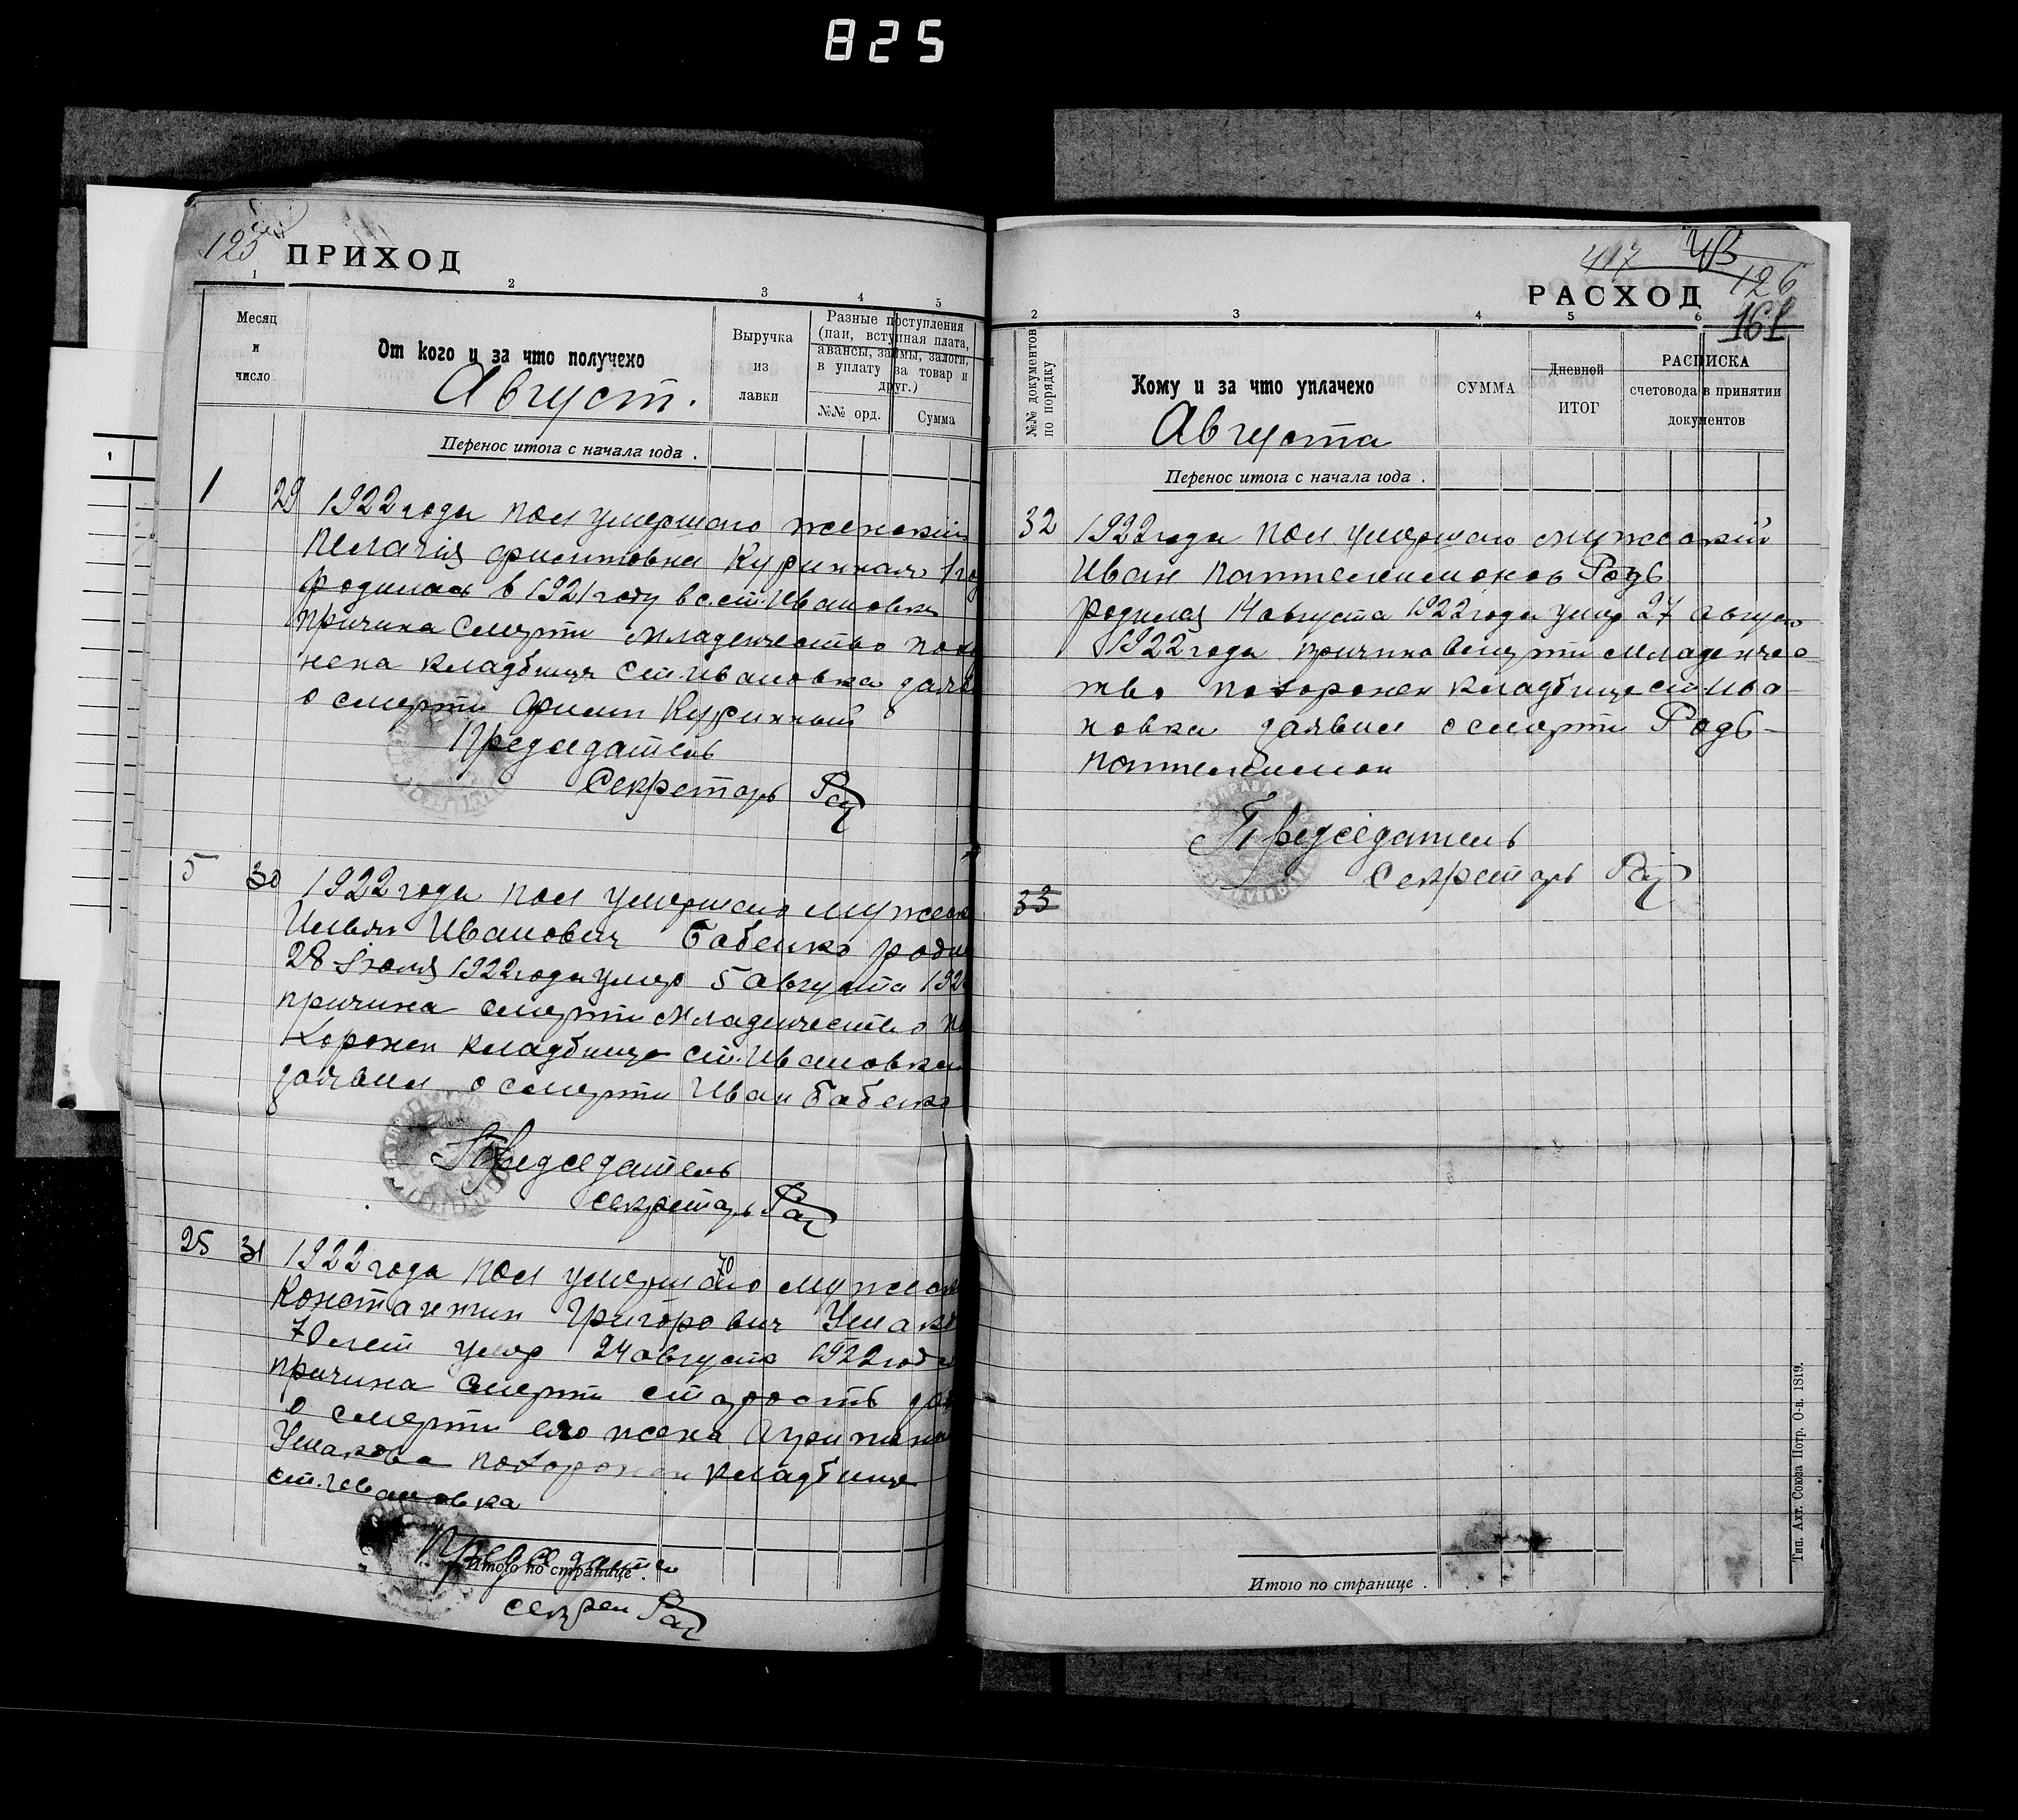 825
125
ПРИХОД
1 2 3 4 5
Месяц и число
От кого и за что получено
Выручка из лавки
Разные поступления (паи, вступная плата, авансы, займы, залоги, в уплату за товар и друг.)
№№ орд.
Сумма
Август.
Перенос итога с начала года .
1 29 1922 года пол умершаго женский
Пелагия Филиповна Куринная 1 го
родилась в 1921 году в с. ст. Ивановка
причина смерти младенчество похо
нена кладбище ст. Ивановка заяв
о смерти Филип Куринный
Председатель
Секретарь
5 30 1922 года пол умершаго мужск
Илья Иванович Бабенко роди
28 Июля 1922 года умер 5 августа 192
причина смерти младенчество по
хоронен кладбище ст. Ивановка
заявил о смерти Иван Бабенко
Председатель
секретарь
25 31 1922 года пол умершаго мужск
70
Константин Григорович Ушако
70 лет умер 24 августа 1922 года
причина смерти старость зая
о смерти его жена
Ушакова похоронен кладбище
ст. Ивановка
Председатель
Итого по странице .
секрет
417
126
161
РАСХОД
2 3 4 5 6
№№ документов по порядку
Кому и за что уплачено
СУММА
Дневной ИТОГ
РАСПИСКА
счетовода в принятии документов
Августа
Перенос итога с начала года .
32 1922 года пол умершаго мужской
Иван Пантелеимонов Родь
родился 14 августа 1922 года умер 27 август
1922 года причина смерти младенчес-
тво похоронен кладбище ст. Ива-
новка заявил о смерти Родь-
Пантелеимон
Председатель
секретарь
33
Итого по странице .
Тип. Ахт. Союза Потр. О-в. 1819.